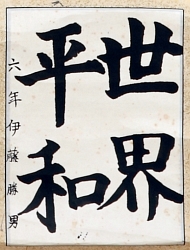 世界
平和
六年 伊藤勝男